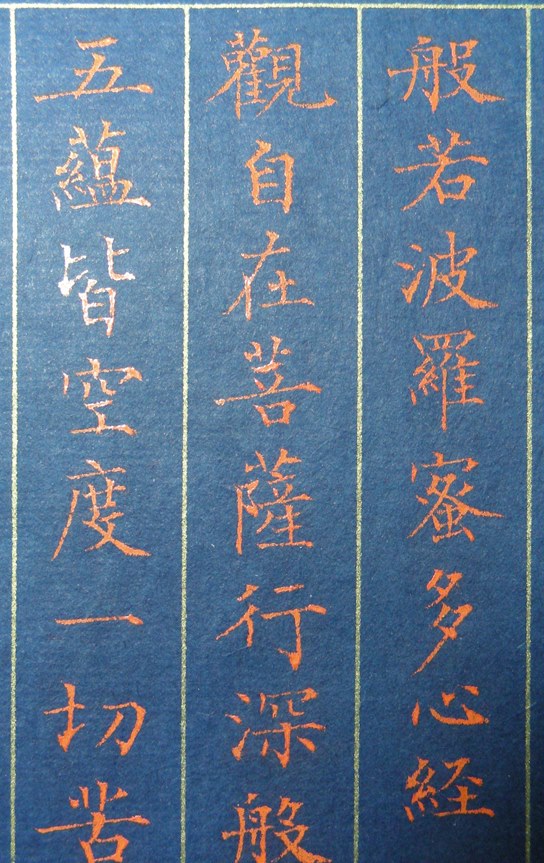 般若波羅蜜多心経
觀自在菩薩行深般
五蘊皆空度一切苦